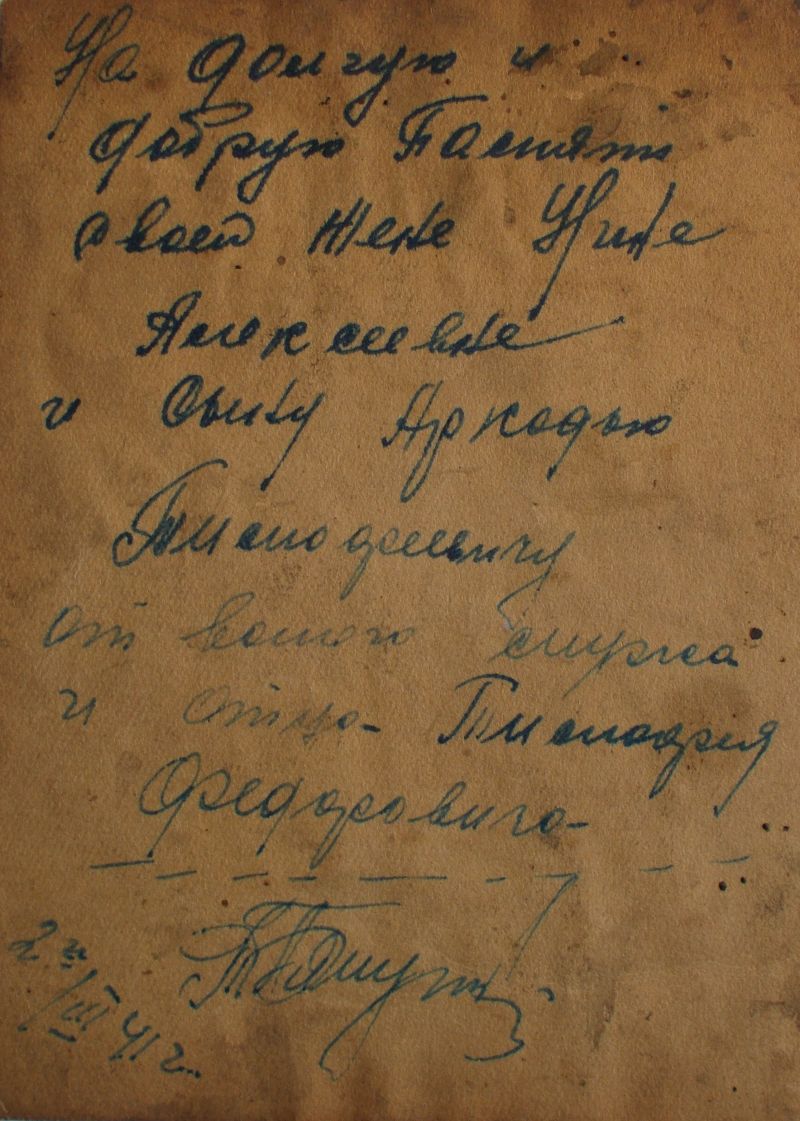 На долгую и
добрую Память
своей жене Нине
Алексевне
и Сыну Аркадью
Тимофеевичу
от вашего мужа
и отца Тимофея
Федоровича
/III 41 г.